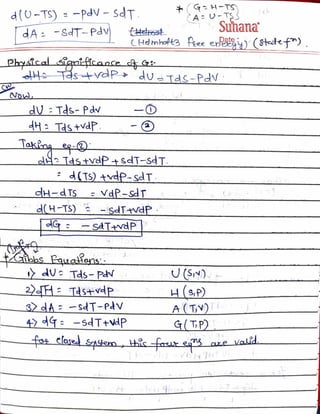 d(U-TS) = -PdV - SdT.
* G = H-TS
A = U-TS
Suhana
dA = -SdT-PdV
(Helmholtz free energy) (state fⁿ)
Date :
Physical significance of G:-
dH= Tds+vdP → dU = TdS-PdV
Now,
dU = Tds- Pdv - ①
dH = Tds+vdP. - ②
Taking eq-②
dH= Tds+vdP+SdT-SdT.
= d(TS) +vdP-SdT.
dH-dTS = VdP-SdT
d(H-TS) = -SdT+VdP.
dG = -SdT+vdP
(Imp)
* Gibbs Equations:-
1) dU = Tds- PdV U(S,V).
2) dH = Tds+vdP H(S,P)
3> dA = -SdT-PdV A(T,V)
4> dG = -SdT+VdP G(T,P)
for closed system, this four eqⁿs are valid.